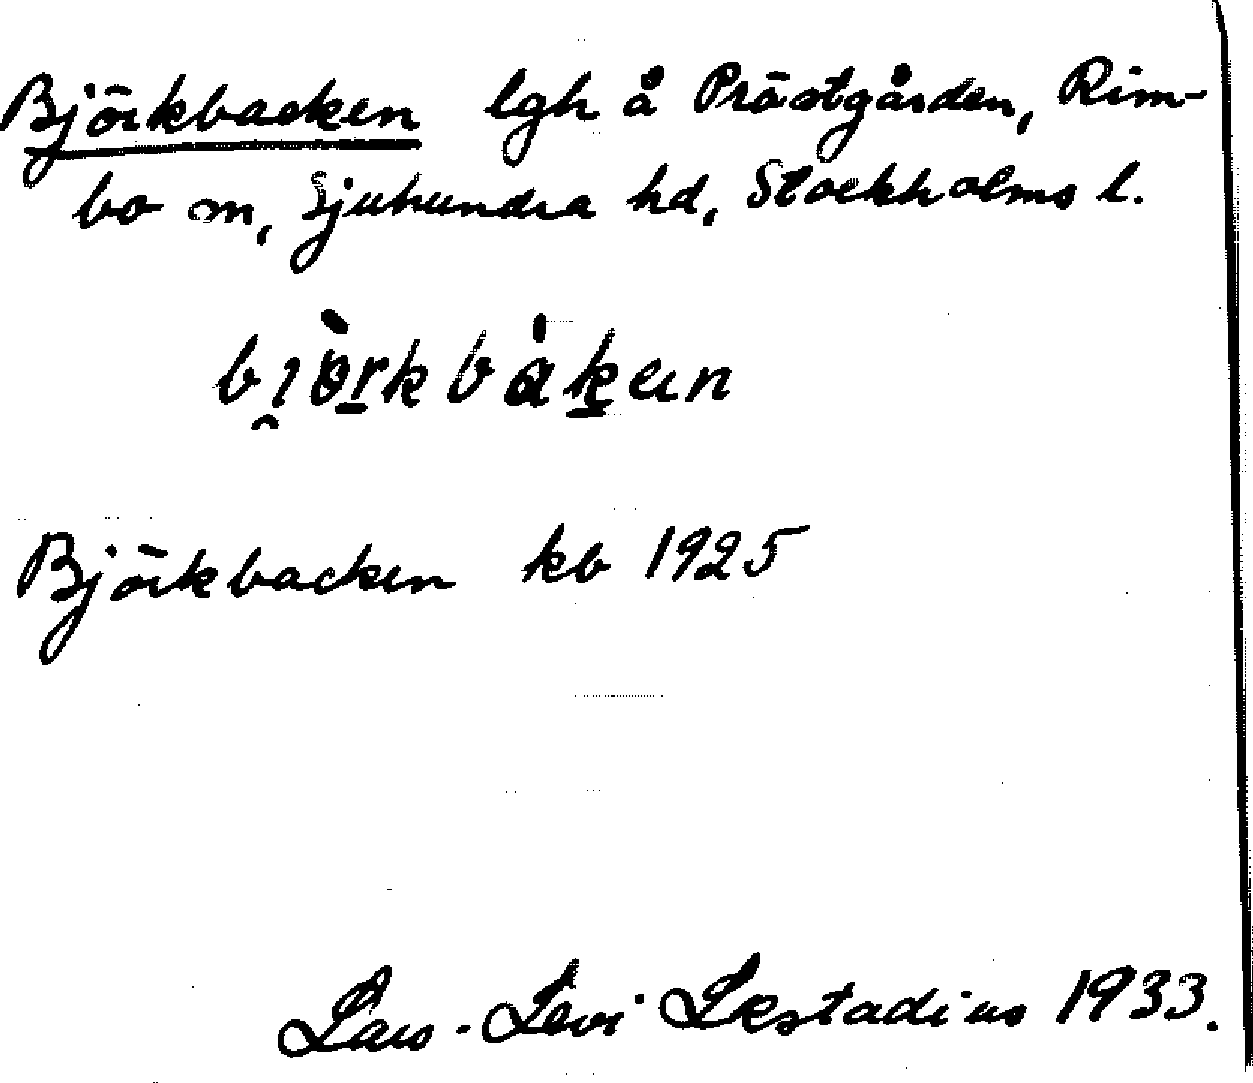 Björkbacken lgh å Prästgården, Rim-
bo sn, Sjuhundra hd, Stockholms l.
bi̯ö̀rkbàken
Björkbacken kb 1925
Lars-Levi Læstadius 1933.